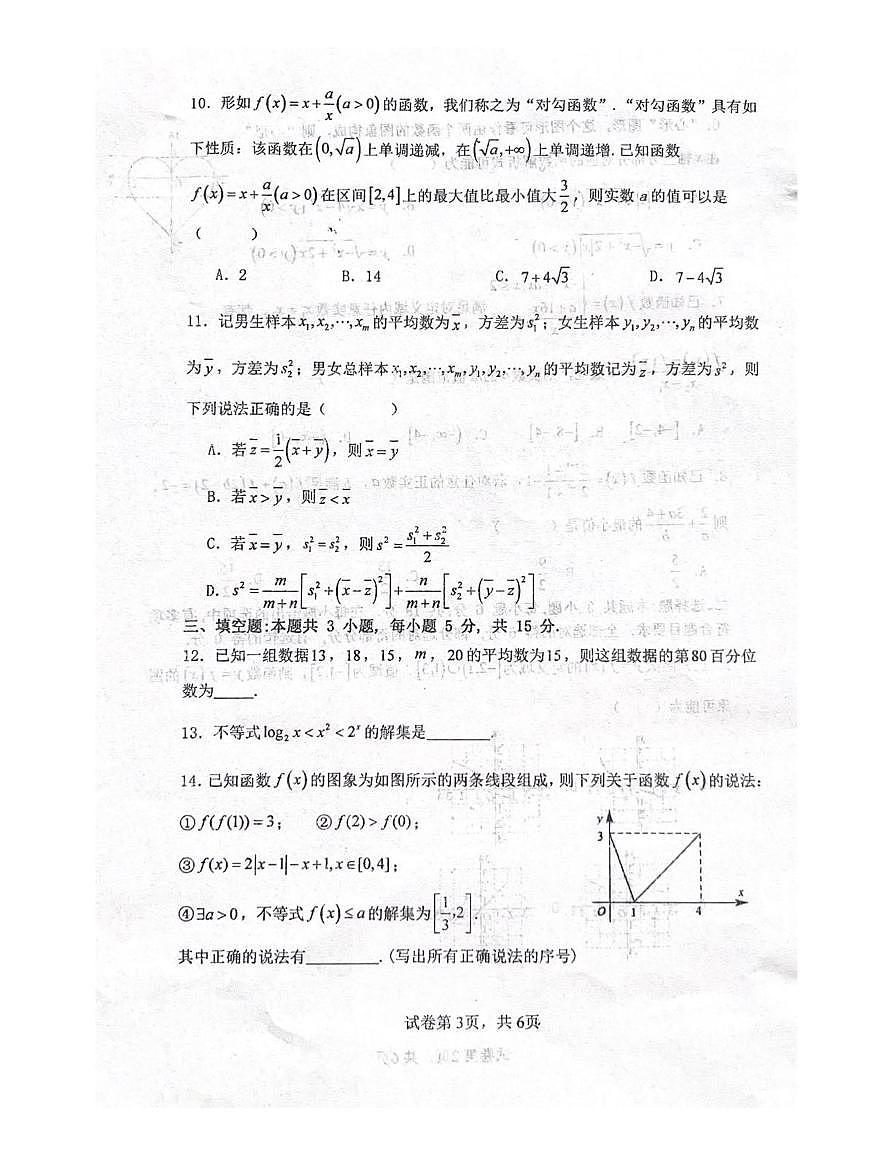 10. 形如 f(x)=x+a/x(a>0)的函数，我们称之为“对勾函数”. “对勾函数”具有如
下性质：该函数在(0,√a)上单调递减，在(√a,+∞)上单调递增.已知函数
f(x)=x+a/x(a>0)在区间[2,4]上的最大值比最小值大3/2，则实数a的值可以是
（ ）
A. 2 B. 14 C. 7+4√3 D. 7-4√3
11. 记男生样本x₁,x₂,⋯,xₘ的平均数为x̄，方差为s₁²；女生样本y₁,y₂,⋯,yₙ的平均数
为ȳ，方差为s₂²；男女总样本x₁,x₂,⋯,xₘ,y₁,y₂,⋯,yₙ的平均数记为z̄，方差为s²，则
下列说法正确的是（ ）
A. 若z̄=1/2(x̄+ȳ)，则x̄=ȳ
B. 若x̄>ȳ，则z̄<x̄
C. 若x̄=ȳ，s₁²=s₂²，则s²=(s₁²+s₂²)/2
D. s²=m/(m+n)[s₁²+(x̄-z̄)²]+n/(m+n)[s₂²+(ȳ-z̄)²]
三、填空题:本题共 3 小题，每小题 5 分，共 15 分.
12. 已知一组数据13，18，15，m，20的平均数为15，则这组数据的第80百分位
数为_____.
13. 不等式log₂x<x²<2ˣ的解集是________.
14. 已知函数f(x)的图象为如图所示的两条线段组成，则下列关于函数f(x)的说法：
①f(f(1))=3； ②f(2)>f(0)；
③f(x)=2|x-1|-x+1,x∈[0,4]；
④∃a>0，不等式f(x)≤a的解集为[1/3,2].
其中正确的说法有_________.(写出所有正确说法的序号)
y
3
x
O 1 4
试卷第 3页，共 6页